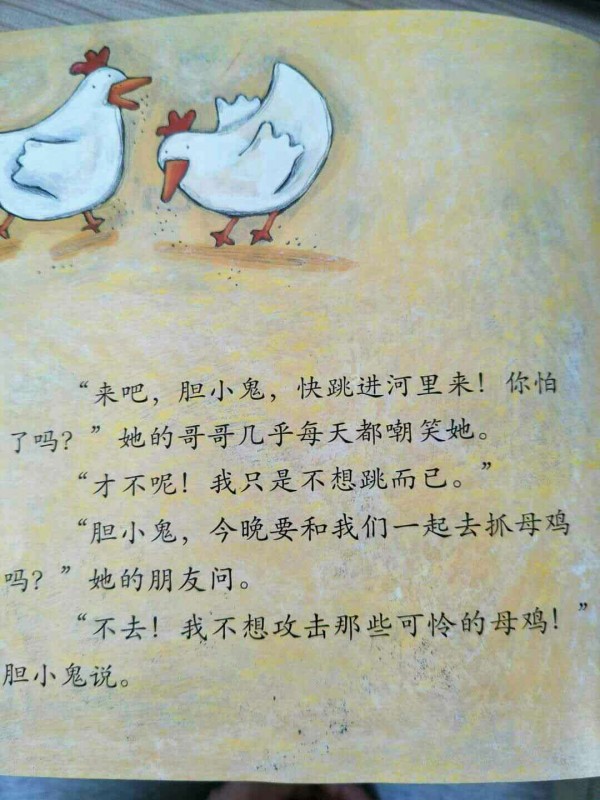 “来吧，胆小鬼，快跳进河里来！你怕
了吗？”她的哥哥几乎每天都嘲笑她。
“才不呢！我只是不想跳而已。”
“胆小鬼，今晚要和我们一起去抓母鸡
吗？”她的朋友问。
“不去！我不想攻击那些可怜的母鸡！”
胆小鬼说。